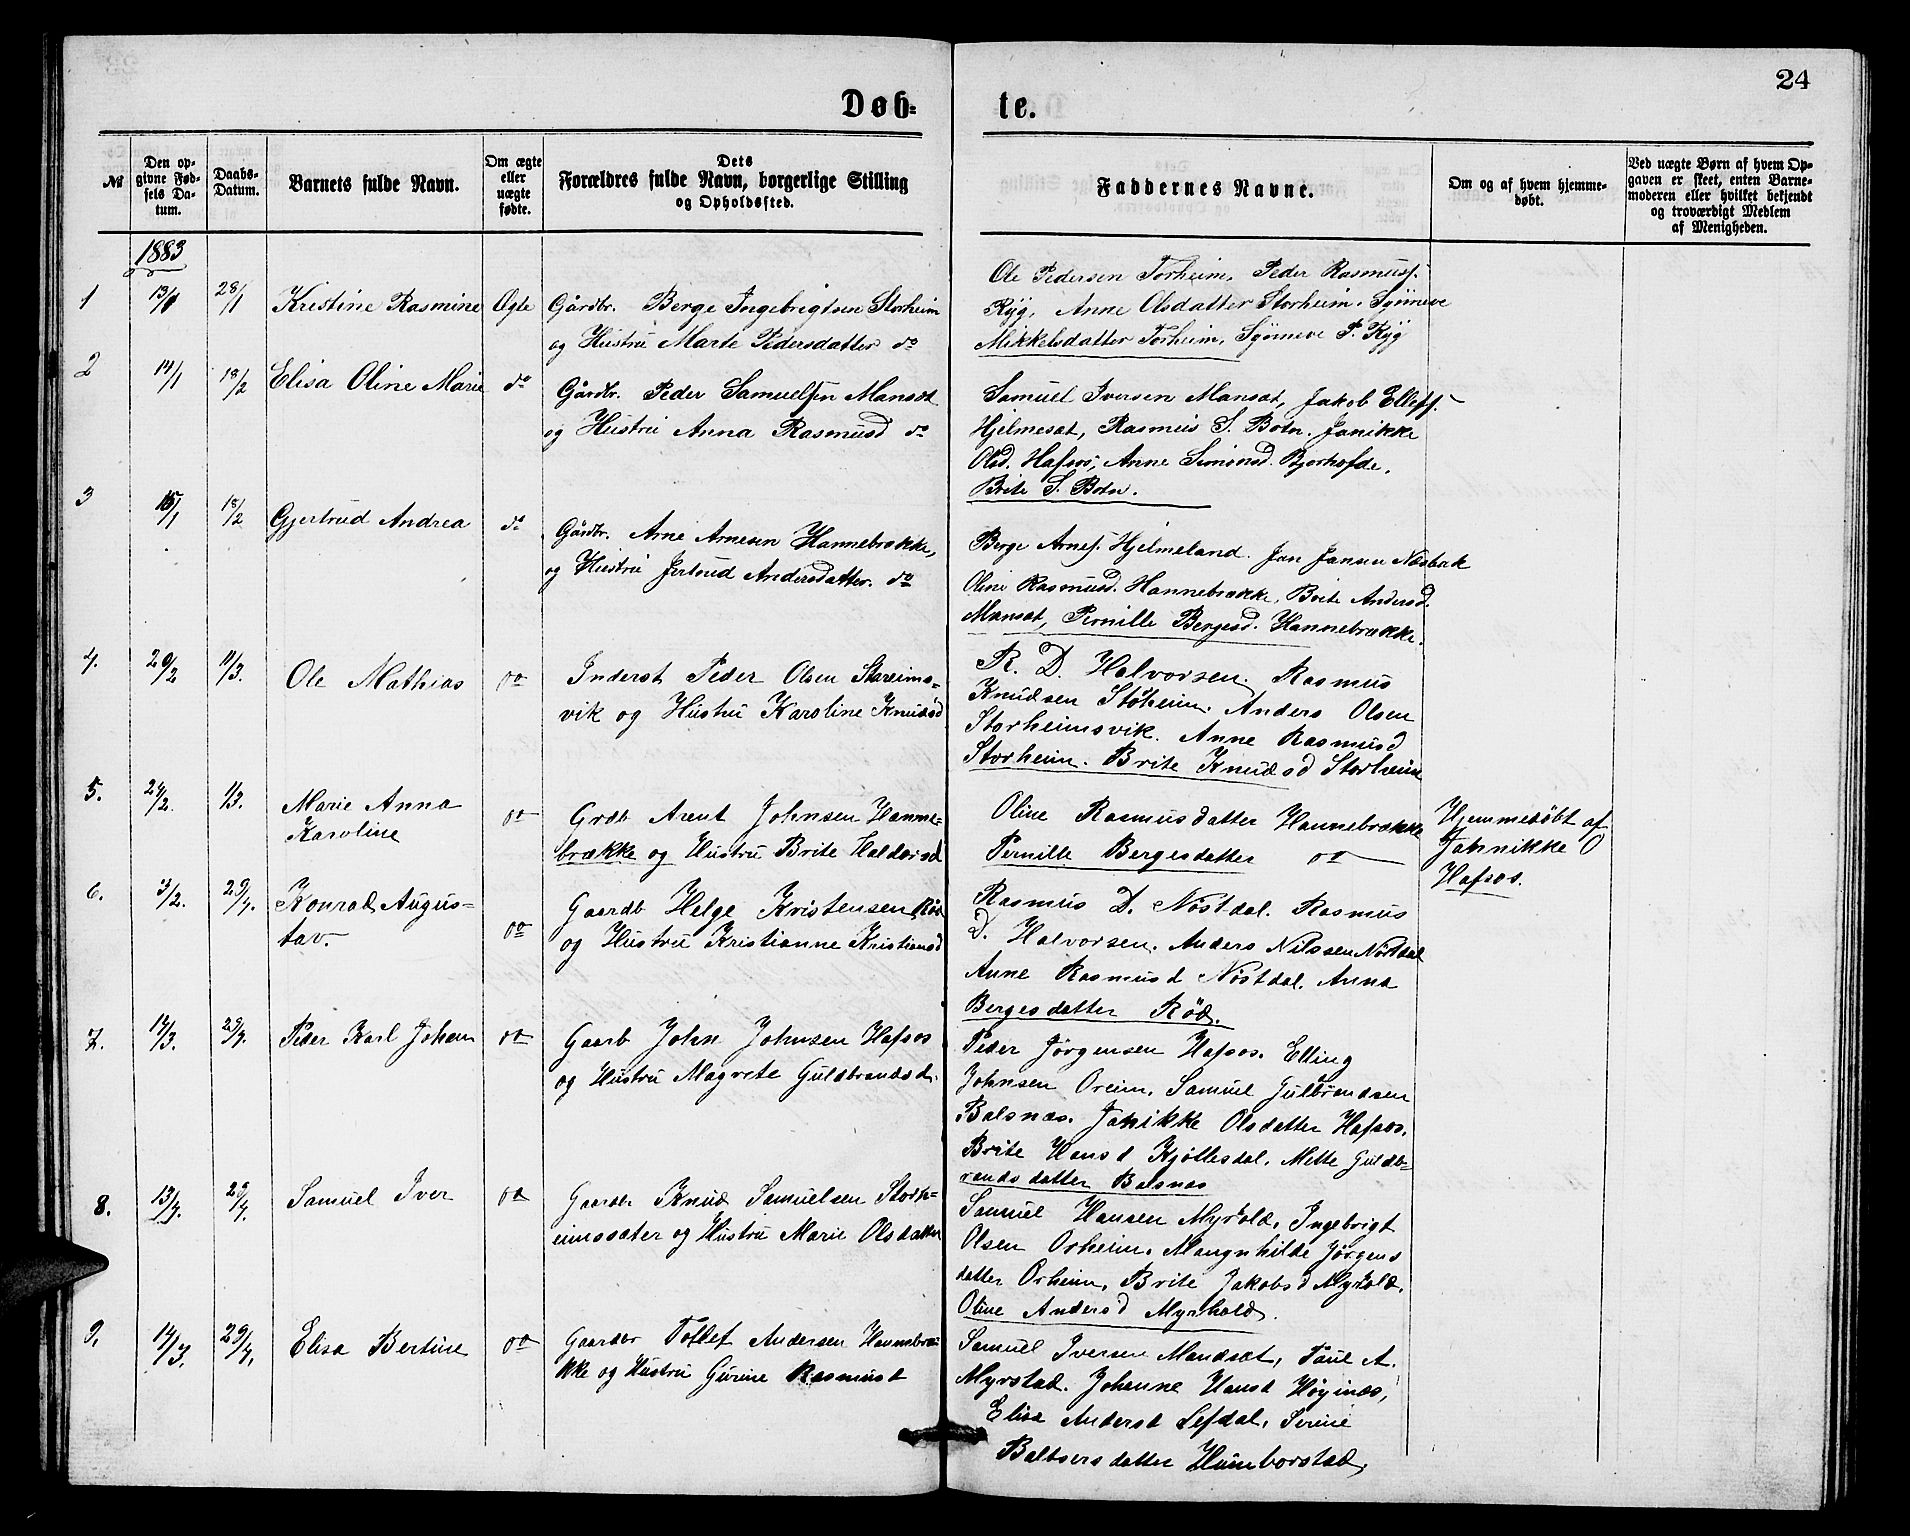 24
Døb- te.
№
Den op-
givne Fød-
sels Da-
tum.
Daabs-
Datum.
Barnets fulde Navn.
Om ægte
eller
uægte
fødte.
Dets
Forældres fulde Navn, borgerlige Stilling
og Opholdssted.
Faddernes Navne.
Om og af hvem hjemme-
døbt.
Ved uægte Børn af hvem Op-
gaven er skeet, enten Barne-
moderen eller hvilket bekjendt
og troværdigt Medlem
af Menigheden.
1883
1 13/1 28/1 Kristine Rasmine Ægte
Gårdbr. Berge Ingebrigtsen Storheim
og Hustru Marte Pedersdatter do
Ole Pedersen Torheim, Peder Rasmuss.
Ryg, Anne Olsdatter Storheim. Synneve
Mikkelsdatter Torheim, Synneve P. Ryg
2 14/1 18/2 Elisa Oline Marie do
Gårdbr. Peder Samuelsen Mansæt
og Hustru Anna Rasmusd do
Samuel Iversen Mansæt, Jakob Ellefs.
Hjelmesæt, Rasmus S. Botn. Janikke
Olsd. Hafsos, Anne Simonsd. Bjorhofde,
Brite S. Botn.
3 15/1 18/2 Gjertrud Andrea do
Gårdbr. Arne Arnesen Hannebrække,
og Hustru Jertrud Andersdatter. do
Berge Arnes. Hjelmeland. Jan Jansen Næsbak
Oline Rasmusd. Hannebrække, Brite Andersd.
Mansæt, Pernille Bergesd. Hannebrække.
4. 29/2 11/3. Ole Mathias do
Inderst Peder Olsen Storeims-
vik og Hustru Karoline Knudsd
R. D. Halvorsen. Rasmus
Knudsen Støheim. Anders Olsen
Storheimsvik. Anne Rasmusd
Storheim. Brite Knudsd Storheim
5. 24/2. 11/3. Marie Anna
Karoline do
Grdb Arent Johnsen Hanne-
brække og Hustru Brite Haldorsd
Oline Rasmusdatter Hannebrække
Pernille Bergesdatter do
Hjemmedöbt af
Jahnikke
Hafsos.
6. 3/2. 29/4. Konrad Augus-
tav. do
Gaardb Helge Kristensen Röd
og Hustru Kristianne Kristiansd
Rasmus D. Nöstdal. Rasmus
D. Halvorsen. Anders Nilssen Nöstdal
Anne Rasmusd Nöstdal. Anna
Bergesdatter Röd.
7. 14/3. 29/4. Peder Karl Johan do
Gaarb John Johnsen Hafsos
og Hustru Magrete Guldbrandsd.
Peder Jörgensen Hafsos. Elling
Johnsen Oreim. Samuel Gulbrandsen
Balsnæs. Janikke Olsdatter Hafsos.
Brite Hansd Kjöllesdal. Mette Guldb-
randsdatter Balsnæs
8. 13/4. 29/4. Samuel Iver do
Gaardb Knud Samuelsen Storh-
eimssæter og Hustru Marie Olsdatter
Samuel Hansen Myrold. Ingebrigt
Olsen Orheim. Mangnhilde Jörgens
datter Orheim. Brite Jakobsd Myrold.
Oline Andersd Myrhold.
9. 14/3. 29/4. Elisa Bertine do
Gaardbr Tollef Andersen Hannebræ
kke og Hustru Gurine Rasmusd
Samuel Iversen Mandsæt, Paul A.
Myrstad. Johanne Hansd Höyinæs,
Elisa Andersd Lefdal. Serine
Baltsersdatter Humborstad.